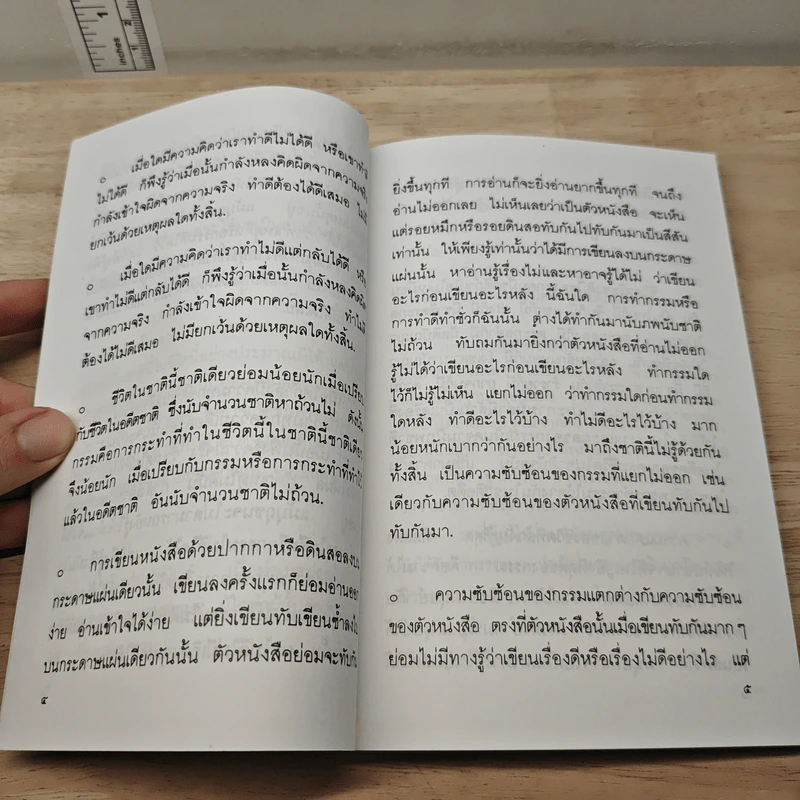 inches
1
2
๐ เมื่อใดมีความคิดว่าเราทำดีไม่ได้ดี หรือเขาทำดี
ไม่ได้ดี ก็พึงรู้ว่าเมื่อนั้นกำลังหลงคิดผิดจากความจริง
กำลังเข้าใจผิดจากความจริง ทำดีต้องได้ดีเสมอ ไม่มี
ยกเว้นด้วยเหตุผลใดทั้งสิ้น.
๐ เมื่อใดมีความคิดว่าเราทำไม่ดีแต่กลับได้ดี หรือ
เขาทำไม่ดีแต่กลับได้ดี ก็พึงรู้ว่าเมื่อนั้นกำลังหลงคิดผิด
จากความจริง กำลังเข้าใจผิดจากความจริง ทำไม่ดี
ต้องได้ไม่ดีเสมอ ไม่มียกเว้นด้วยเหตุผลใดทั้งสิ้น.
๐ ชีวิตในชาตินี้ชาติเดียวย่อมน้อยนักเมื่อเปรียบ
กับชีวิตในอดีตชาติ ซึ่งนับจำนวนชาติหาถ้วนไม่ ดังนั้น
กรรมคือการกระทำที่ทำในชีวิตนี้ในชาตินี้ชาติเดียว
จึงน้อยนัก เมื่อเปรียบกับกรรมหรือการกระทำที่ทำไว้
แล้วในอดีตชาติ อันนับจำนวนชาติไม่ถ้วน.
๐ การเขียนหนังสือด้วยปากกาหรือดินสอลงบน
กระดาษแผ่นเดียวนั้น เขียนลงครั้งแรกก็ย่อมอ่านออก
ง่าย อ่านเข้าใจได้ง่าย แต่ยิ่งเขียนทับเขียนซ้ำลงไป
บนกระดาษแผ่นเดียวกันนั้น ตัวหนังสือย่อมจะทับกัน
๔
ยิ่งขึ้นทุกที การอ่านก็จะยิ่งอ่านยากขึ้นทุกที จนถึง
อ่านไม่ออกเลย ไม่เห็นเลยว่าเป็นตัวหนังสือ จะเห็น
แต่รอยหมึกหรือรอยดินสอทับกันไปทับกันมาเป็นสีสัน
เท่านั้น ให้เพียงรู้เท่านั้นว่าได้มีการเขียนลงบนกระดาษ
แผ่นนั้น หาอ่านรู้เรื่องไม่และหาอาจรู้ได้ไม่ ว่าเขียน
อะไรก่อนเขียนอะไรหลัง นี้ฉันใด การทำกรรมหรือ
การทำดีทำชั่วก็ฉันนั้น ต่างได้ทำกันมานับภพนับชาติ
ไม่ถ้วน ทับถมกันมายิ่งกว่าตัวหนังสือที่อ่านไม่ออก
รู้ไม่ได้ว่าเขียนอะไรก่อนเขียนอะไรหลัง ทำกรรมใด
ไว้ก็ไม่รู้ไม่เห็น แยกไม่ออก ว่าทำกรรมใดก่อนทำกรรม
ใดหลัง ทำดีอะไรไว้บ้าง ทำไม่ดีอะไรไว้บ้าง มาก
น้อยหนักเบากว่ากันอย่างไร มาถึงชาตินี้ไม่รู้ด้วยกัน
ทั้งสิ้น เป็นความซับซ้อนของกรรมที่แยกไม่ออก เช่น
เดียวกับความซับซ้อนของตัวหนังสือที่เขียนทับกันไป
ทับกันมา.
๐ ความซับซ้อนของกรรมแตกต่างกับความซับซ้อน
ของตัวหนังสือ ตรงที่ตัวหนังสือนั้นเมื่อเขียนทับกันมาก ๆ
ย่อมไม่มีทางรู้ว่าเขียนเรื่องดีหรือเรื่องไม่ดีอย่างไร แต่
๕